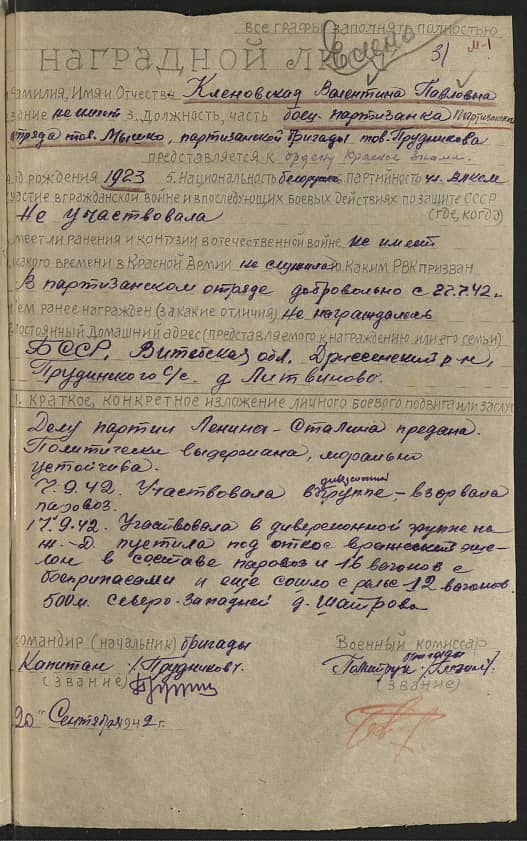 все графы заполнять полностью
31 М-1
НАГРАДНОЙ
Фамилия, Имя и Отчество Кленовская Валентина Павловна
звание не имеет 3. Должность, часть боец партизанка партизанск.
отряда тов. Мысько, партизанской бригады тов. Прудникова
представляется к ордену Красное знамя.
год рождения 1923 5. Национальность белорусска Партийность чл. ВЛКСМ
участие в гражданской войне и в последующих боевых действиях по защите СССР
(где, когда)
Не участвовала
имеет ли ранения и контузии в отечественной войне не имеет
с какого времени в Красной Армии не служила Каким РВК призван
В партизанском отряде добровольно с 22.7.42 г.
Чем ранее награжден (за какие отличия) Не награждалась
Постоянный домашний адрес (представляемого к награждению или его семьи)
БССР, Витебская обл. Дриссенский р-н,
Прудинского С/с. д. Литвиново.
1. Краткое, конкретное изложение личного боевого подвига или заслуг
Делу партии Ленина-Сталина предана.
Политически выдержана, морально
устойчива.
7.9.42. Участвовала в группе, взорвала
паровоз.
17.9.42. Участвовала в диверсионной группе на
ж.-д. пустила под откос вражеский эше-
лон в составе паровоз и 16 вагонов с
боеприпасами и еще сошло с рельс 12 вагонов.
500 м. северо-западней д. Шатрово
командир (начальник) бригады
Военный комиссар
бригады
Капитан /Прудников/.
Политрук
(звание)
(звание)
20 " Сентября 1942 г.